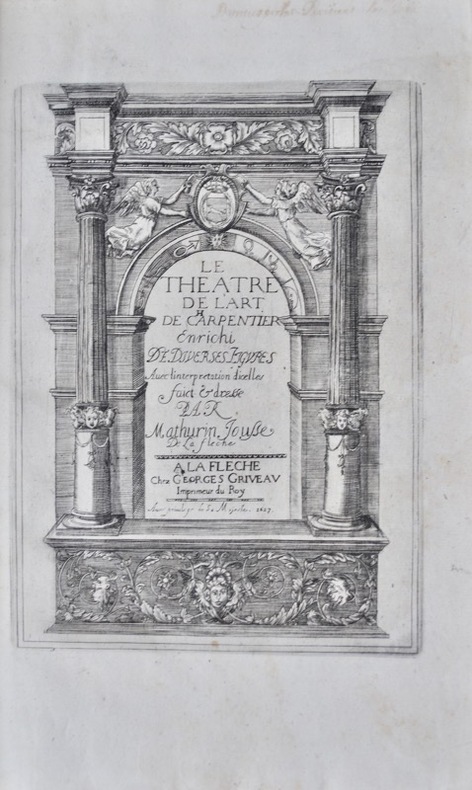 LE
THEATRE
DE L'ART
DE CHARPENTIER
Enrichi
DE DIVERSES FIGVRES
Auec l'interpretation d'icelles
faict & dresse
PAR
Mathurin Jousse
De La fleche
A LA FLECHE
Chez GEORGES GRIVEAV
Imprimeur du Roy
Auec privilege de sa M. 1627